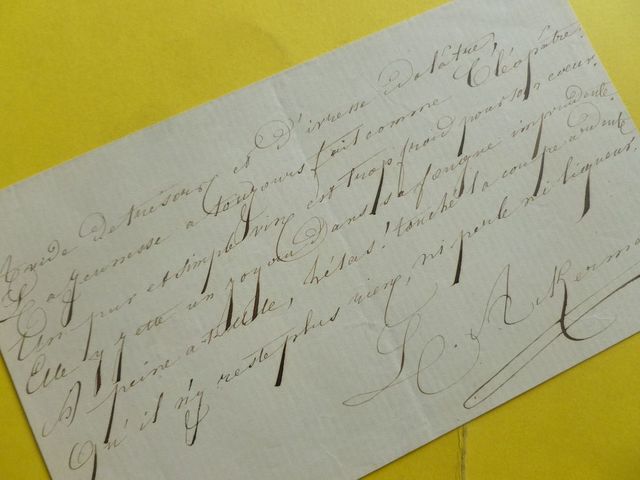 Avide de trésors et d'ivresse idolâtre,
La jeunesse a toujours fait comme Cléopâtre.
Un pur et simple vin est trop froid pour son cœur.
Elle y jette un joyau dans sa fougue imprudente.
A peine a-t-elle, hélas! touché la coupe ardente
Qu'il n'y reste plus rien, ni perle ni liqueur.
L. Ackerma